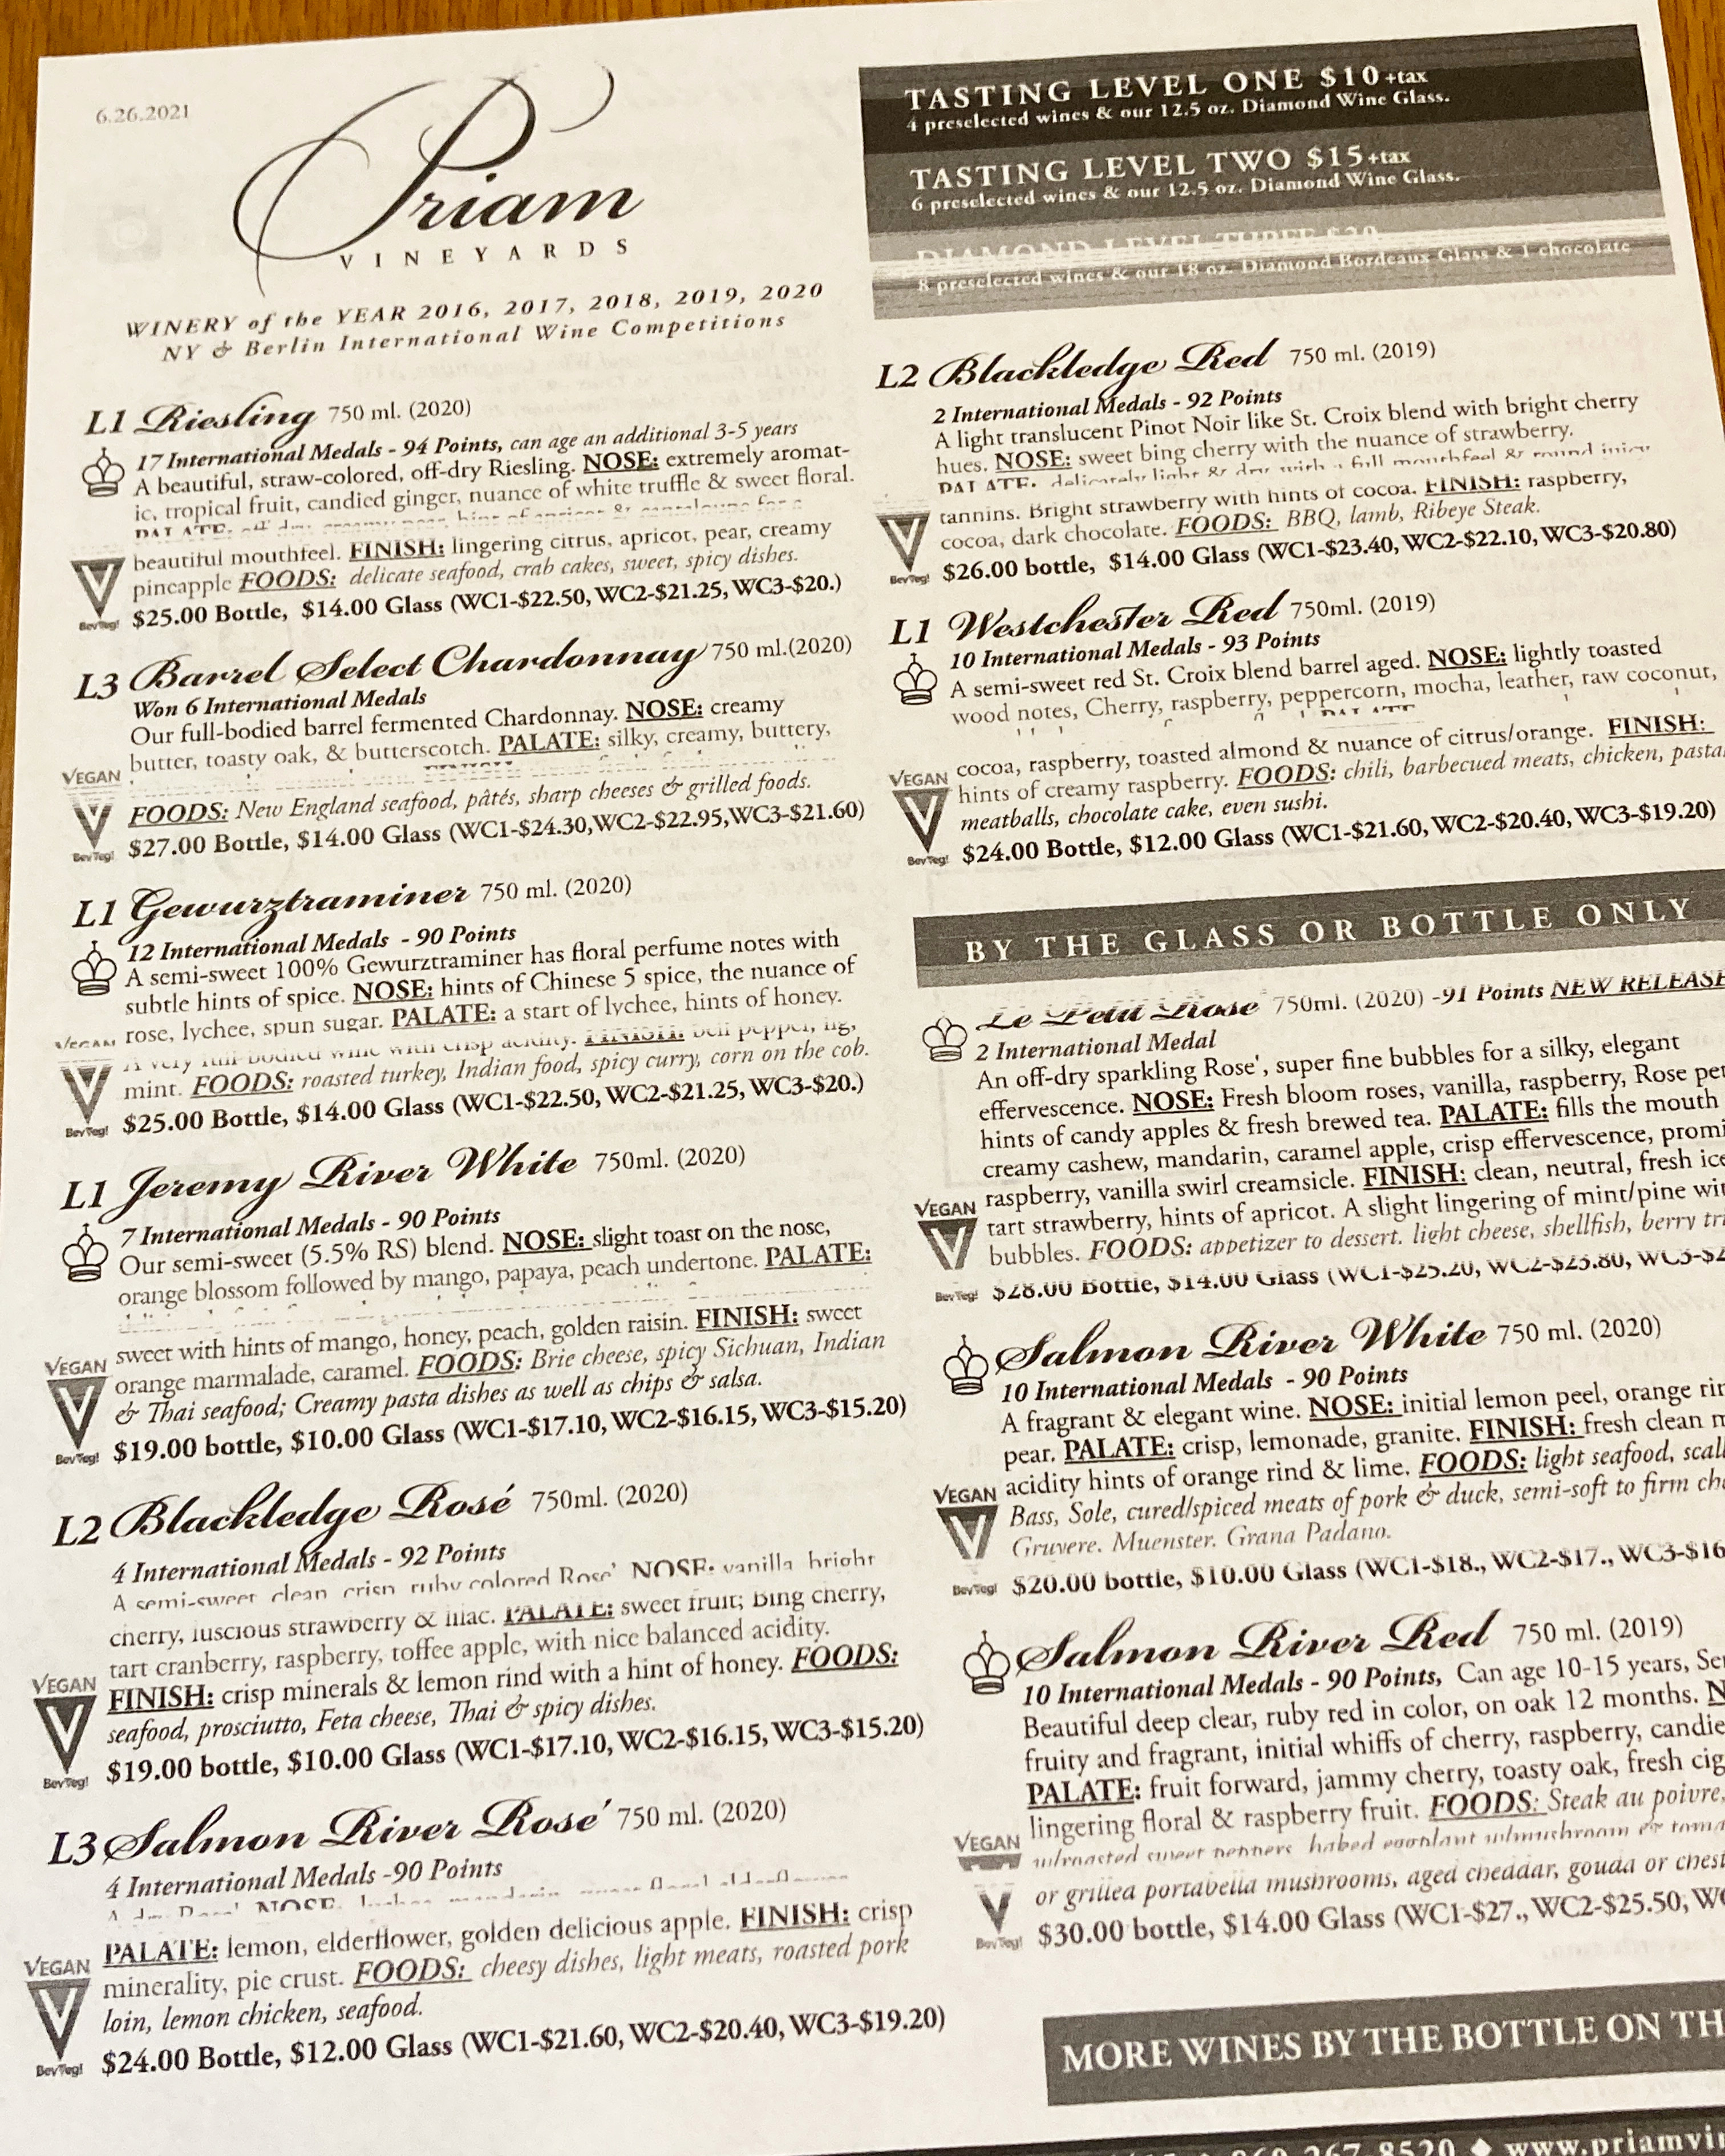 6.26.2021
Priam
VINEYARDS
WINERY of the YEAR 2016, 2017, 2018, 2019, 2020
NY & Berlin International Wine Competitions
L1 Riesling 750 ml. (2020)
17 International Medals - 94 Points, can age an additional 3-5 years
A beautiful, straw-colored, off-dry Riesling. NOSE: extremely aromat-
ic, tropical fruit, candied ginger, nuance of white truffle & sweet floral.
PALATE:
beautiful mouthfeel. FINISH: lingering citrus, apricot, pear, creamy
pineapple FOODS: delicate seafood, crab cakes, sweet, spicy dishes.
BevVeg! $25.00 Bottle, $14.00 Glass (WC1-$22.50, WC2-$21.25, WC3-$20.)
L3 Barrel Select Chardonnay 750 ml.(2020)
Won 6 International Medals
Our full-bodied barrel fermented Chardonnay. NOSE: creamy
butter, toasty oak, & butterscotch. PALATE: silky, creamy, buttery,
VEGAN
FOODS: New England seafood, pâtés, sharp cheeses & grilled foods.
BevVeg! $27.00 Bottle, $14.00 Glass (WC1-$24.30,WC2-$22.95,WC3-$21.60)
L1 Gewurztraminer 750 ml. (2020)
12 International Medals - 90 Points
A semi-sweet 100% Gewurztraminer has floral perfume notes with
subtle hints of spice. NOSE: hints of Chinese 5 spice, the nuance of
rose, lychee, spun sugar. PALATE: a start of lychee, hints of honey.
VEGAN A very full-bodied wine with crisp acidity. FINISH: bell pepper, fig,
mint. FOODS: roasted turkey, Indian food, spicy curry, corn on the cob.
BevVeg! $25.00 Bottle, $14.00 Glass (WC1-$22.50, WC2-$21.25, WC3-$20.)
L1 Jeremy River White 750ml. (2020)
7 International Medals - 90 Points
Our semi-sweet (5.5% RS) blend. NOSE: slight toast on the nose,
orange blossom followed by mango, papaya, peach undertone. PALATE:
sweet with hints of mango, honey, peach, golden raisin. FINISH: sweet
VEGAN orange marmalade, caramel. FOODS: Brie cheese, spicy Sichuan, Indian
& Thai seafood; Creamy pasta dishes as well as chips & salsa.
BevVeg! $19.00 bottle, $10.00 Glass (WC1-$17.10, WC2-$16.15, WC3-$15.20)
L2 Blackledge Rosé 750ml. (2020)
4 International Medals - 92 Points
A semi-sweet, clean, crisp, ruby colored Rose' NOSE: vanilla, bright
cherry, luscious strawberry & lilac. PALATE: sweet fruit; Bing cherry,
tart cranberry, raspberry, toffee apple, with nice balanced acidity.
VEGAN FINISH: crisp minerals & lemon rind with a hint of honey. FOODS:
seafood, prosciutto, Feta cheese, Thai & spicy dishes.
BevVeg! $19.00 bottle, $10.00 Glass (WC1-$17.10, WC2-$16.15, WC3-$15.20)
L3 Salmon River Rose' 750 ml. (2020)
4 International Medals -90 Points
A dry Rose' NOSE:
PALATE: lemon, elderflower, golden delicious apple. FINISH: crisp
VEGAN minerality, pie crust. FOODS: cheesy dishes, light meats, roasted pork
loin, lemon chicken, seafood.
BevVeg! $24.00 Bottle, $12.00 Glass (WC1-$21.60, WC2-$20.40, WC3-$19.20)
TASTING LEVEL ONE $10+tax
4 preselected wines & our 12.5 oz. Diamond Wine Glass.
TASTING LEVEL TWO $15+tax
6 preselected wines & our 12.5 oz. Diamond Wine Glass.
DIAMOND LEVEL THREE $20
8 preselected wines & our 18 oz. Diamond Bordeaux Glass & 1 chocolate
L2 Blackledge Red 750 ml. (2019)
2 International Medals - 92 Points
A light translucent Pinot Noir like St. Croix blend with bright cherry
hues. NOSE: sweet bing cherry with the nuance of strawberry.
PALATE: delicately light & dry with a full mouthfeel & round juicy
tannins. Bright strawberry with hints of cocoa. FINISH: raspberry,
cocoa, dark chocolate. FOODS: BBQ, lamb, Ribeye Steak.
BevVeg! $26.00 bottle, $14.00 Glass (WC1-$23.40, WC2-$22.10, WC3-$20.80)
L1 Westchester Red 750ml. (2019)
10 International Medals - 93 Points
A semi-sweet red St. Croix blend barrel aged. NOSE: lightly toasted
wood notes, Cherry, raspberry, peppercorn, mocha, leather, raw coconut,
PALATE
VEGAN cocoa, raspberry, toasted almond & nuance of citrus/orange. FINISH:
hints of creamy raspberry. FOODS: chili, barbecued meats, chicken, pasta
meatballs, chocolate cake, even sushi.
BevVeg! $24.00 Bottle, $12.00 Glass (WC1-$21.60, WC2-$20.40, WC3-$19.20)
BY THE GLASS OR BOTTLE ONLY
Le Petit Rose' 750ml. (2020) -91 Points NEW RELEASE
2 International Medal
An off-dry sparkling Rose', super fine bubbles for a silky, elegant
effervescence. NOSE: Fresh bloom roses, vanilla, raspberry, Rose
hints of candy apples & fresh brewed tea. PALATE: fills the mouth
creamy cashew, mandarin, caramel apple, crisp effervescence,
raspberry, vanilla swirl creamsicle. FINISH: clean, neutral, fresh
VEGAN tart strawberry, hints of apricot. A slight lingering of mint/pine
bubbles. FOODS: appetizer to dessert. light cheese, shellfish, berry
BevVeg! $28.00 Bottle, $14.00 Glass (WC1-$25.20, WC2-$23.80, WC3-$2
Salmon River White 750 ml. (2020)
10 International Medals - 90 Points
A fragrant & elegant wine. NOSE: initial lemon peel, orange
pear. PALATE: crisp, lemonade, granite. FINISH: fresh clean
VEGAN acidity hints of orange rind & lime. FOODS: light seafood,
Bass, Sole, cured/spiced meats of pork & duck, semi-soft to firm
Gruyere. Muenster. Grana Padano.
BevVeg! $20.00 bottle, $10.00 Glass (WC1-$18., WC2-$17., WC3-$16
Salmon River Red 750 ml. (2019)
10 International Medals - 90 Points, Can age 10-15 years,
Beautiful deep clear, ruby red in color, on oak 12 months.
fruity and fragrant, initial whiffs of cherry, raspberry,
PALATE: fruit forward, jammy cherry, toasty oak, fresh
lingering floral & raspberry fruit. FOODS: Steak au poivre,
VEGAN w/roasted sweet peppers, baked eggplant w/mushroom &
or grilled portabella mushrooms, aged cheddar, gouda or
BevVeg! $30.00 bottle, $14.00 Glass (WC1-$27., WC2-$25.50,
MORE WINES BY THE BOTTLE ON TH
860-267-8520 ◆ www.priamvi